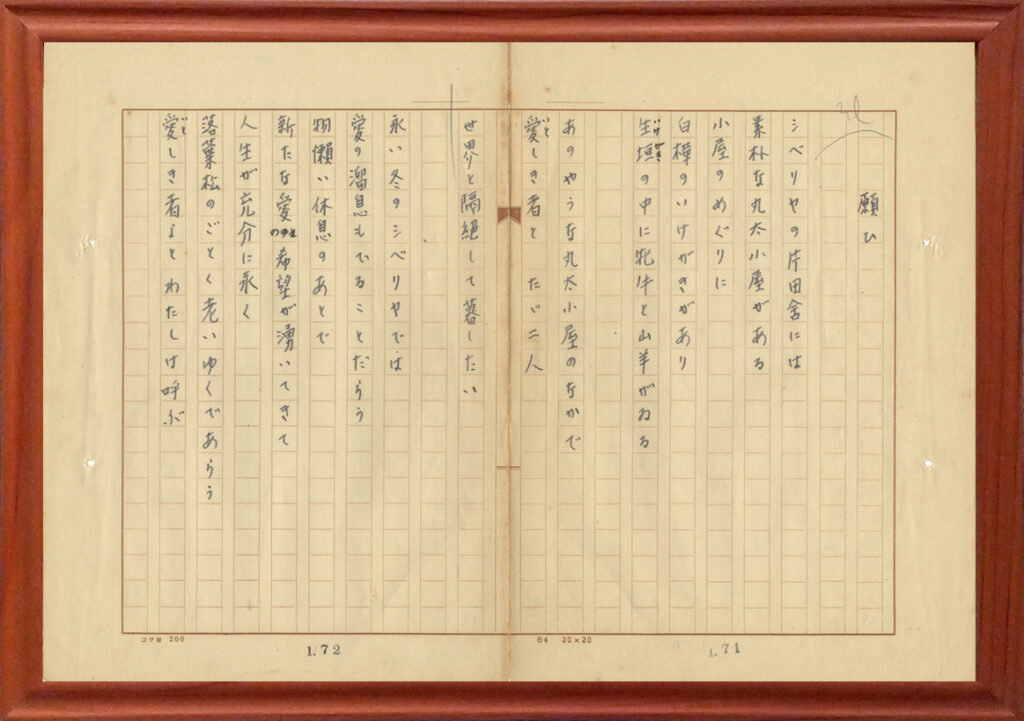 願ひ
シベリヤの片田舎には
素朴な丸太小屋がある
小屋のめぐりに
白樺のいけがきがあり
生垣の中に牝牛と山羊がゐる
あのやうな丸太小屋のなかで
愛しき者と たゞ二人
世界と隔絶して暮したい
永い冬のシベリヤでは
愛の溜息もでることだらう
物懶い休息のあとで
新たな愛の希望が湧いてきて
人生が充分に永く
落葉松のごとく老いゆくであらう
愛しき者よとわたしは呼ぶ
1.71
B4 20×20
1.72
コクヨ 200